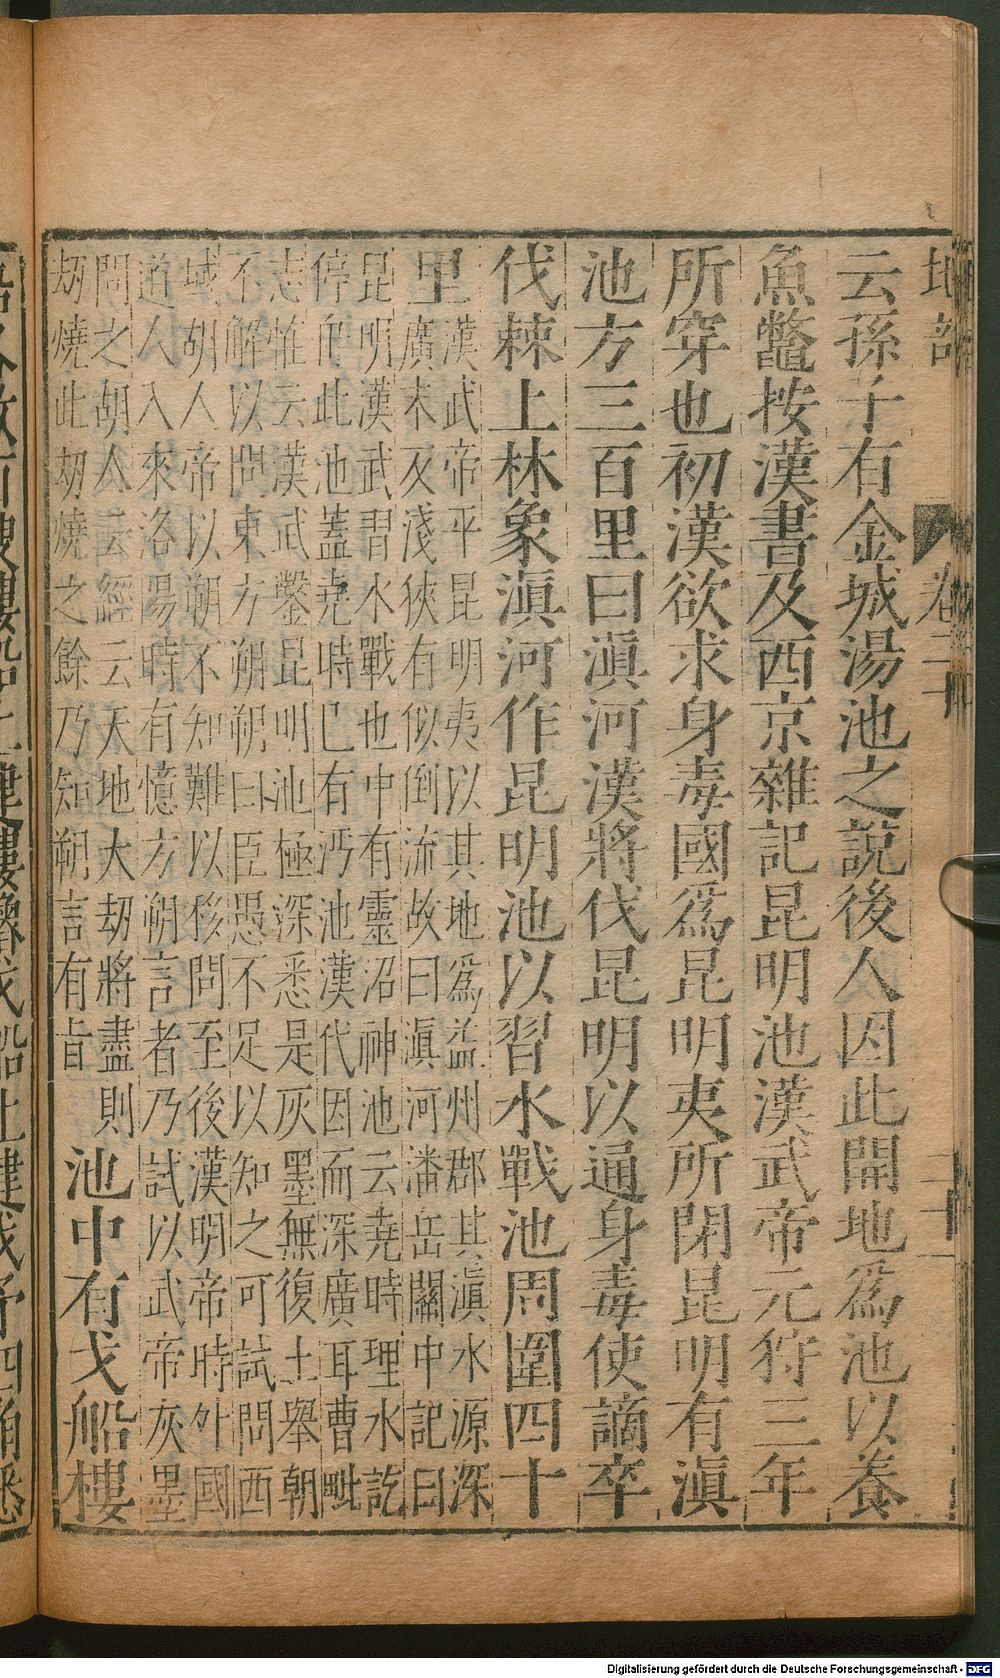 地部
卷二十
二十一
云孫子有金城湯池之說後人因此開地爲池以養
魚鼈按漢書及西京雜記昆明池漢武帝元狩三年
所穿也初漢欲求身毒國爲昆明夷所閉昆明有滇
池方三百里曰滇河漢將伐昆明以通身毒使謫卒
伐棘上林象滇河作昆明池以習水戰池周圍四十
里
漢武帝平昆明夷以其地爲益州郡其滇水源深
廣末又淺狹有似倒流故曰滇河潘岳關中記曰
昆明漢武習水戰也中有靈沼神池云堯時理水訖
停舟此池蓋堯時已有沔池漢代因而深廣耳曹毗
志惟云漢武鑿昆明池極深悉是灰墨無復土舉朝
不解以問東方朔朔曰臣愚不足以知之可試問西
域胡人帝以朔不知難以移問至後漢明帝時外國
道人入來洛陽時有憶方朔言者乃試以武帝灰墨
問之胡人云經云天地大劫將盡則
劫燒此劫燒之餘乃知朔言有旨
池中有戈船樓
Digitalisierung gefördert durch die Deutsche Forschungsgemeinschaft - DFG